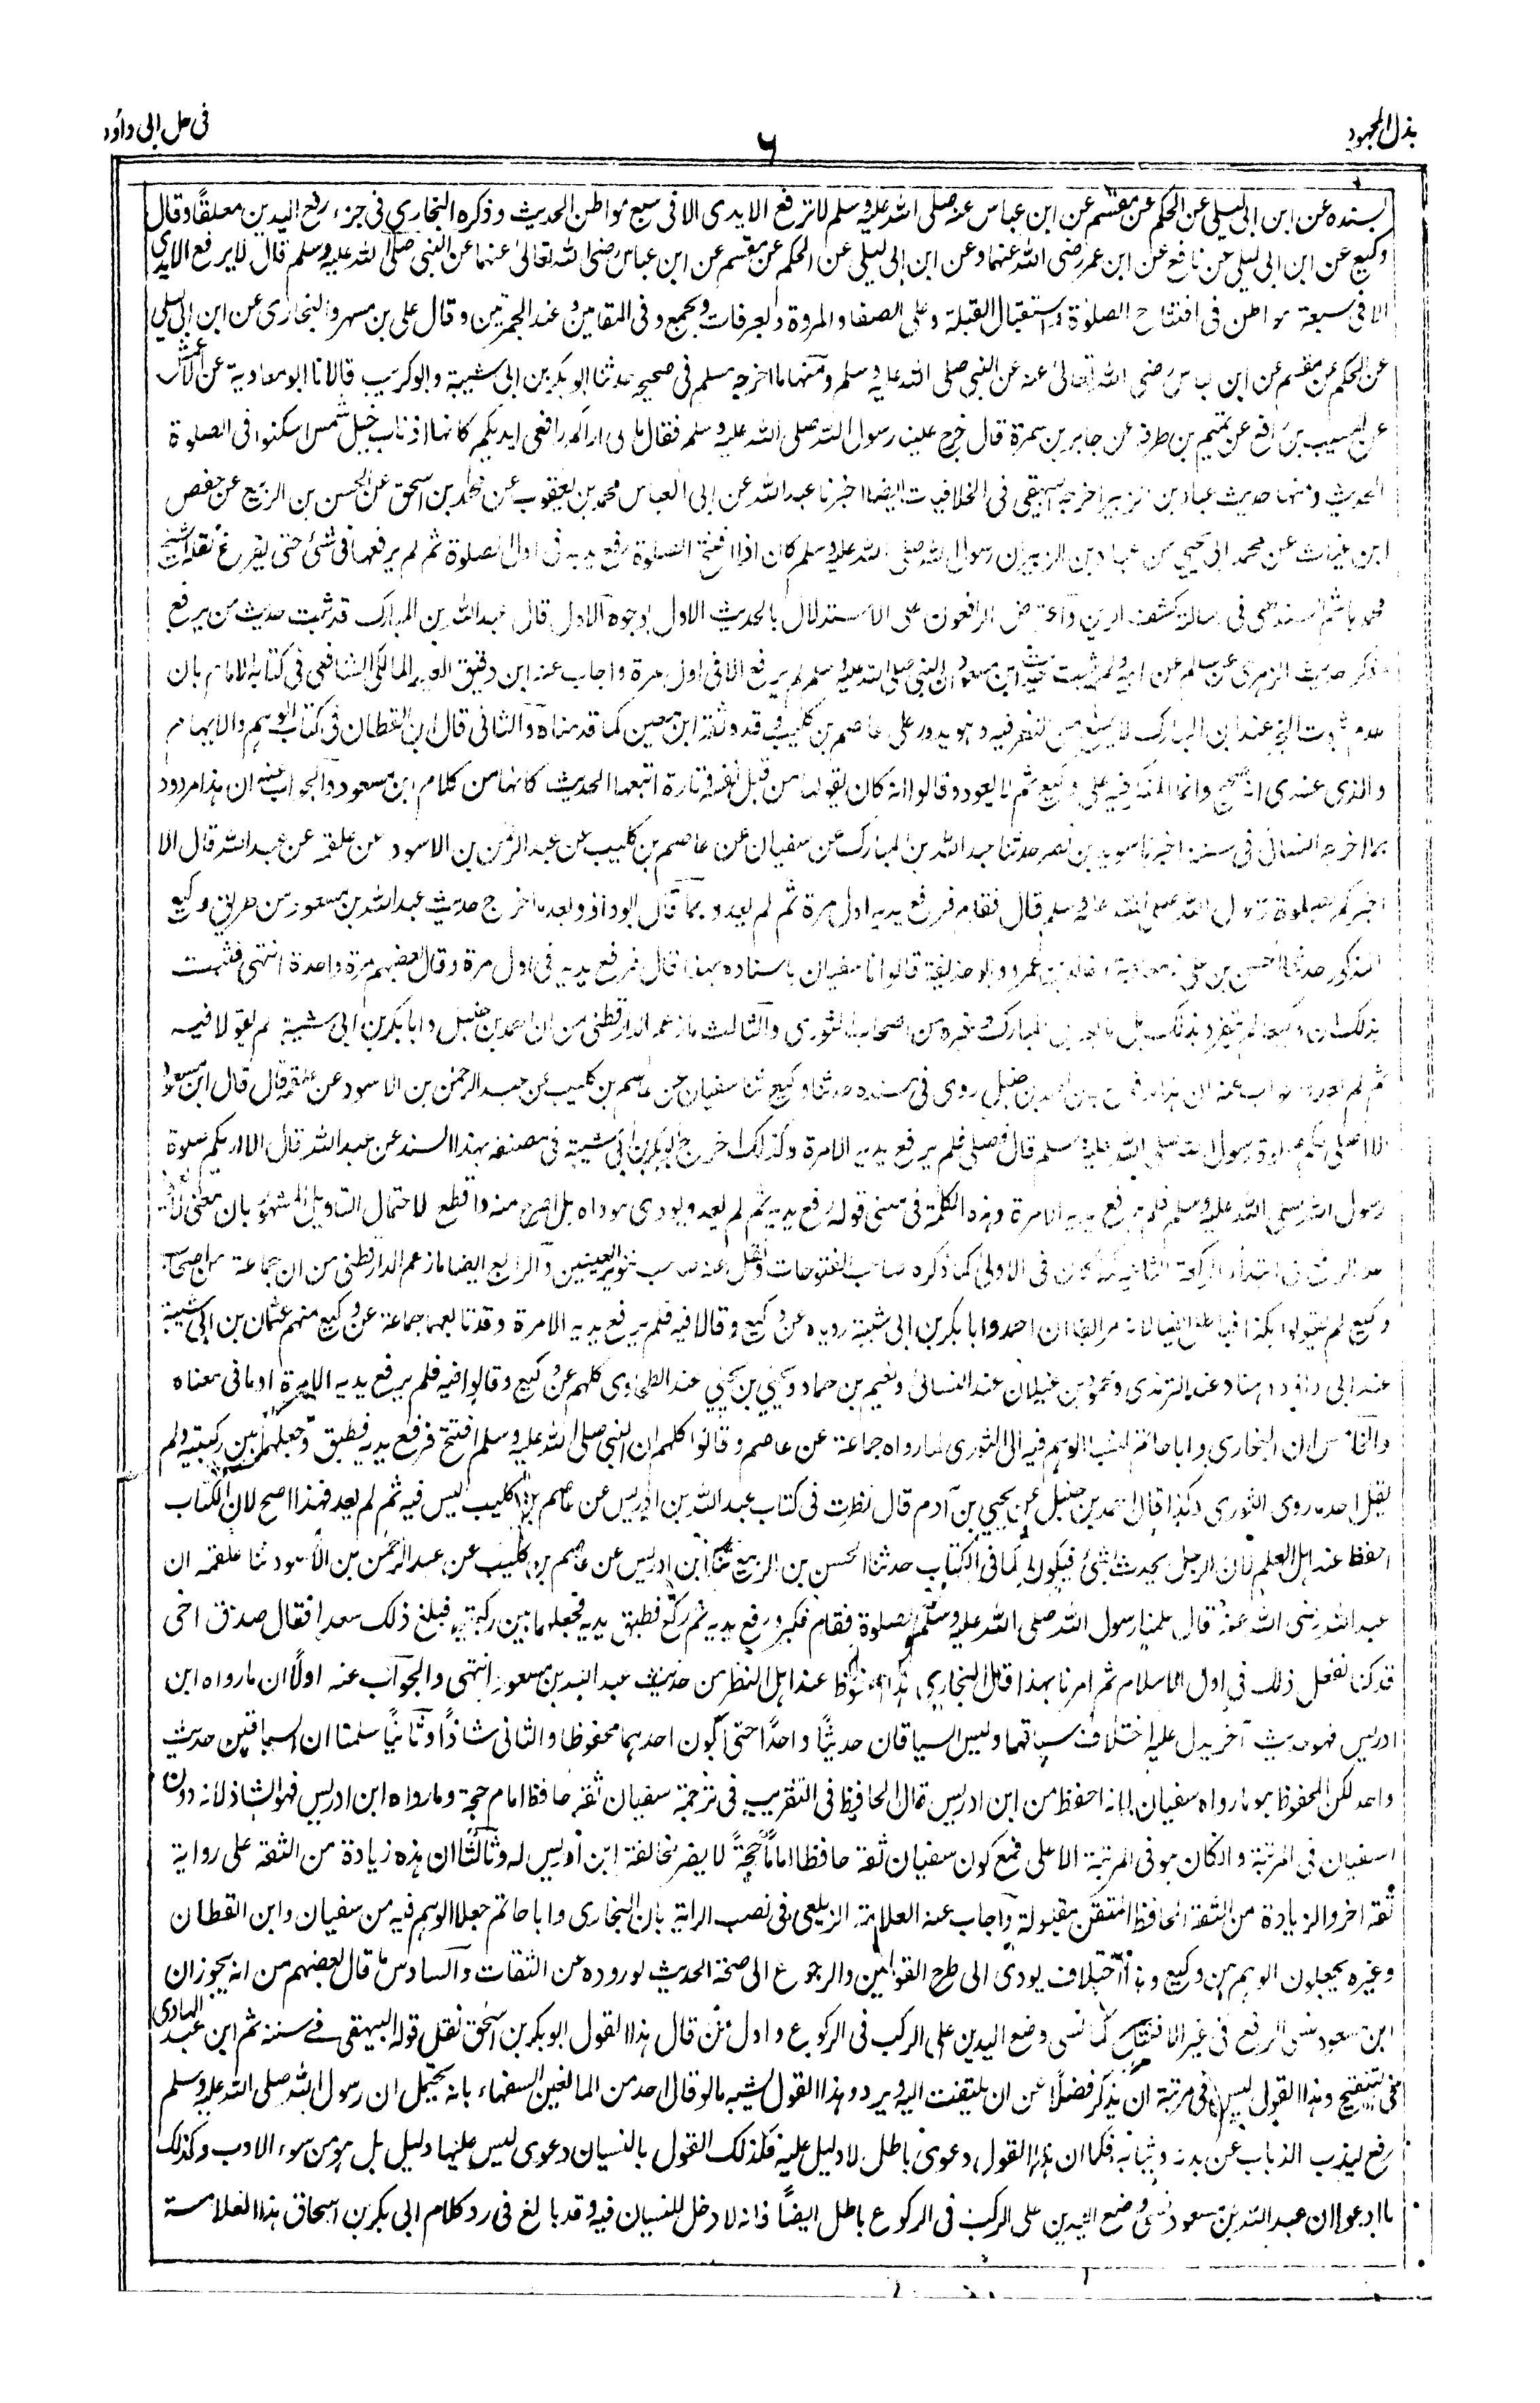 بذل المجهود
٦
فی حل ابی داؤد
بسنده عن ابن ابی لیلی عن الحکم عن مقسم عن ابن عباس عنه صلی الله علیه وسلم لا ترفع الایدی الا فی سبع مواطن الحدیث وذکره البخاری فی جزء رفع الیدین معلقًا وقال
وکیع عن ابن ابی لیلی عن نافع عن ابن عمر رضی الله عنهما وعن ابن ابی لیلی عن الحکم عن مقسم عن ابن عباس رضی الله تعالیٰ عنهما عن النبی صلی الله علیه وسلم قال لا یرفع الایدی
الا فی سبعة مواطن فی افتتاح الصلوٰة واستقبال القبلة وعلی الصفا والمروة وبعرفات وبجمع وفی المقامین وعند الجمرتین وقال علی بن مسهر والبخاری عن ابن ابی لیلی
عن الحکم عن مقسم عن ابن عباس رضی الله تعالیٰ عنه عن النبی صلی الله علیه وسلم ومنها ما اخرجه مسلم فی صحیحه حدثنا ابو بکر بن ابی شیبة وابو کریب قالا نا ابو معاویة عن الاعمش
عن المسیب بن رافع عن تمیم بن طرفة عن جابر بن سمرة قال خرج علینا رسول الله صلی الله علیه وسلم فقال مالی اراکم رافعی ایدیکم کانها اذناب خیل شمس اسکنوا فی الصلوة
الحدیث ومنها حدیث عباد بن الزبیر اخرجه البیهقی فی الخلافیات ایضا اخبرنا عبد الله عن ابی العباس محمد بن یعقوب عن محمد بن اسحق عن الحسن بن الربیع عن حفص
ابن غیاث عن محمد ابی یحیی عن عباد بن الزبیر ان رسول الله صلی الله علیه وسلم کان اذا افتتح الصلوة رفع یدیه فی اول الصلوة ثم لم یرفعها فی شئ حتی یفرغ نقله الشیخ
محمد هاشم السندهی فی رسالة کشف الرین واعترض الرافعون علی الاستدلال بالحدیث الاول بوجوه الاول قال عبد الله بن المبارک قد ثبت حدیث من یرفع
وذکر حدیث الزهری عن سالم عن ابیه ولم یثبت حدیث ابن مسعود ان النبی صلی الله علیه وسلم لم یرفع الا فی اول مرة واجاب عنه ابن دقیق العید المالکی الشافعی فی کتابه الامام بان
عدم ثبوت الخبر عند ابن المبارک لا یمنع من النظر فیه وهو یدور علی عاصم بن کلیب وقد وثقه ابن معین کما قدمناه والثانی قال ابن القطان فی کتاب الوهم والایهام
والذی عندی انه صحیح وانما المنکر فیه علی وکیع ثم لا یعود وقالوا انه کان یقولها من قبل نفسه وتارة اتبعها الحدیث کانها من کلام ابن مسعود والجواب عنه ان هذا مردود
بما اخرجه النسائی فی سننه اخبرنا سوید بن نصر حدثنا عبد الله بن المبارک عن سفیان عن عاصم بن کلیب عن عبد الرحمن بن الاسود عن علقمة عن عبد الله قال الا
اخبرکم بصلوة رسول الله صلی الله علیه وسلم قال فقام فرفع یدیه اول مرة ثم لم یعد وبما قال ابو داؤد وبعد ما اخرج حدیث عبد الله بن مسعود من طریق وکیع
المذکور حدثنا الحسن بن علی نا معاویة وخالد بن عمرو وابو حذیفة قالوا نا سفیان باسناده بهذا قال فرفع یدیه فی اول مرة وقال بعضهم مرة واحدة انتهی فثبت
بذلک ان وکیعا لم یتفرد بذلک بل تابعه ابن المبارک وغیره من اصحاب الثوری والثالث ما زعمه الدارقطنی من ان احمد بن حنبل وابا بکر بن ابی شیبة لم یقولا فیه
ثم لم یعد والجواب عنه ان هذا احمد بن حنبل روی فی مسنده حدثنا وکیع ثنا سفیان عن عاصم بن کلیب عن عبد الرحمن بن الاسود عن علقمة قال قال ابن مسعود
الا اصلی بکم صلوة رسول الله صلی الله علیه وسلم قال فصلی فلم یرفع یدیه الا مرة وکذلک اخرج ابو بکر بن ابی شیبة فی مصنفه بهذا السند عن عبد الله قال الا اریکم صلوة
رسول الله صلی الله علیه وسلم فلم یرفع یدیه الا مرة وهذه الکلمة فی معنی قوله رفع یدیه ثم لم یعد ویؤدی موداه بل اصرح منه واقطع لاحتمال التاویل المشهور بان معنی
عدم الرفع فی ابتداء الرکعة الثانیة کما کان فی الاولی کما ذکره صاحب الفتوحات ونقل عنه صاحب تنویر العینین والرابع ایضا ما زعم الدارقطنی من ان جماعة من اصحاب
وکیع لم یقولوا هکذا ان احمد وابا بکر بن ابی شیبة رویاه عن وکیع وقالا فیه فلم یرفع یدیه الا مرة وقد تابعهما جماعة عن وکیع منهم عثمان بن ابی شیبة
عند ابی داؤد وهناد عند الترمذی ومحمود بن غیلان عند النسائی ونعیم بن حماد ویحیی بن یحیی عند الطحاوی کلهم عن وکیع وقالوا فیه فلم یرفع یدیه الا مرة او ما فی معناه
والخامس ان البخاری وابا حاتم نسبا الوهم فیه الی الثوری لما رواه جماعة عن عاصم وقالوا کلهم ان النبی صلی الله علیه وسلم افتتح فرفع یدیه فطبق وجعلهما بین رکبتیه ولم
یقل احد ما روی الثوری وکذا قال احمد بن حنبل عن یحیی بن آدم قال نظرت فی کتاب عبد الله بن ادریس عن عاصم بن کلیب لیس فیه ثم لم یعد فهذا اصح لان الکتاب
احفظ عند اهل العلم لان الرجل یحدث بشئ فیکون کما فی الکتاب حدثنا الحسن بن الربیع ثنا ابن ادریس عن عاصم بن کلیب عن عبد الرحمن بن الاسود ثنا علقمة ان
عبد الله رضی الله عنه قال علمنا رسول الله صلی الله علیه وسلم الصلوة فقام فکبر ورفع یدیه ثم رکع فطبق یدیه فجعلهما بین رکبتیه فبلغ ذلک سعدا فقال صدق اخی
قد کنا نفعل ذلک فی اول الاسلام ثم امرنا بهذا قال البخاری هذا المحفوظ عند اهل النظر من حدیث عبد الله بن مسعود انتهی والجواب عنه اولًا ان ما رواه ابن
ادریس فهو حدیث آخر یدل علیه اختلاف سیاقهما ولیس السیاقان حدیثًا واحدًا حتی یکون احدهما محفوظا والثانی شاذًا وثانیًا سلمنا ان السیاقین حدیث
واحد لکن المحفوظ هو ما رواه سفیان لانه احفظ من ابن ادریس قال الحافظ فی التقریب فی ترجمة سفیان ثقة حافظ امام حجة وما رواه ابن ادریس فهو الشاذ لانه دون
سفیان فی المرتبة وان کان هو فی المرتبة الاعلی فمع کون سفیان ثقة حافظا امامًا حجةً لا یضر مخالفة ابن ادریس له وثالثًا ان هذه زیادة من الثقة علی روایة
ثقة اخر والزیادة من الثقة الحافظ المتقن مقبولة واجاب عنه العلامة الزیلعی فی نصب الرایة بان البخاری وابا حاتم جعلا الوهم فیه من سفیان وابن القطان
وغیره یجعلون الوهم من وکیع وهذا اختلاف یودی الی طرح القولین والرجوع الی صحة الحدیث لوروده عن الثقات والسادس ما قال بعضهم من انه یجوز ان
ابن مسعود نسی الرفع فی غیر الافتتاح کما نسی وضع الیدین علی الرکب فی الرکوع واول من قال هذا القول ابو بکر بن اسحق نقل قوله البیهقی فی سننه ثم ابن عبد الهادی
فی التنقیح وهذا القول لیس فی مرتبة ان یذکر فضلًا عن ان یلتفت الیه ویرد وهذا القول یشبه ما لو قال احد من المبالغین السفهاء بانه یحتمل ان رسول الله صلی الله علیه وسلم
رفع لیذب الذباب عن بدنه وثیابه فکما ان هذا القول دعوی باطل لا دلیل علیه فکذلک القول بالنسیان دعوی لیس علیها دلیل بل هو من سوء الادب وکذلک
ما ادعوا ان عبد الله بن مسعود نسی وضع الیدین علی الرکب فی الرکوع باطل ایضًا فانه لا دخل للنسیان فیه وقد بالغ فی رد کلام ابی بکر بن اسحاق هذا العلامة